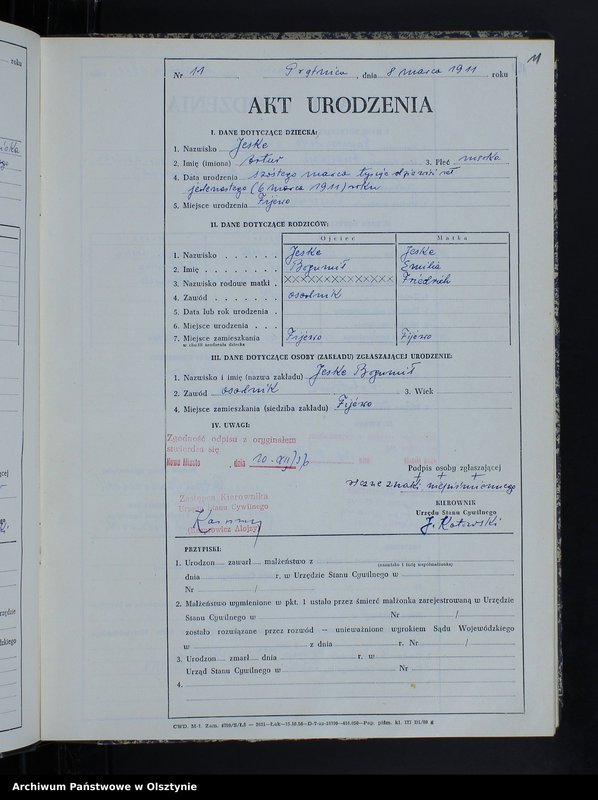 11
Nr 11 , Prątnica , dnia 8 marca 1911 roku
AKT URODZENIA
I. DANE DOTYCZĄCE DZIECKA:
1. Nazwisko Jeske
2. Imię (imiona) Artur 3. Płeć męska
4. Data urodzenia szóstego marca tysiąc dziewięćset
jedenastego (6 marca 1911) roku
5. Miejsce urodzenia Fijewo
II. DANE DOTYCZĄCE RODZICÓW:
Ojciec Matka
1. Nazwisko Jeske Jeske
2. Imię Bogumił Emilia
3. Nazwisko rodowe matki XXXXXXXXXXXXX Friedrich
4. Zawód osadnik
5. Data lub rok urodzenia
6. Miejsce urodzenia
7. Miejsce zamieszkania Fijewo Fijewo
w chwili urodzenia dziecka
III. DANE DOTYCZĄCE OSOBY (ZAKŁADU) ZGŁASZAJĄCEJ URODZENIE:
1. Nazwisko i imię (nazwa zakładu) Jeske Bogumił
2. Zawód osadnik 3. Wiek
4. Miejsce zamieszkania (siedziba zakładu) Fijewo
IV. UWAGI:
Zgodność odpisu z oryginałem
stwierdza się
Nowe Miasto dnia 10.XII/56
Podpis osoby zgłaszającej
ręczne znaki niepiśmiennego
Zastępca Kierownika
Urzędu Stanu Cywilnego
KIEROWNIK
Urzędu Stanu Cywilnego
J. Kotewski
PRZYPISKI:
1. Urodzon zawarł małżeństwo z
(nazwisko i imię współmałżonka)
dnia r. w Urzędzie Stanu Cywilnego w
Nr /
2. Małżeństwo wymienione w pkt. 1 ustało przez śmierć małżonka zarejestrowaną w Urzędzie
Stanu Cywilnego w Nr /
zostało rozwiązane przez rozwód — unieważnione wyrokiem Sądu Wojewódzkiego
w z dnia r. Nr /
3. Urodzon zmarł dnia r. w
Urząd Stanu Cywilnego w Nr
4.
Archiwum Państwowe w Olsztynie